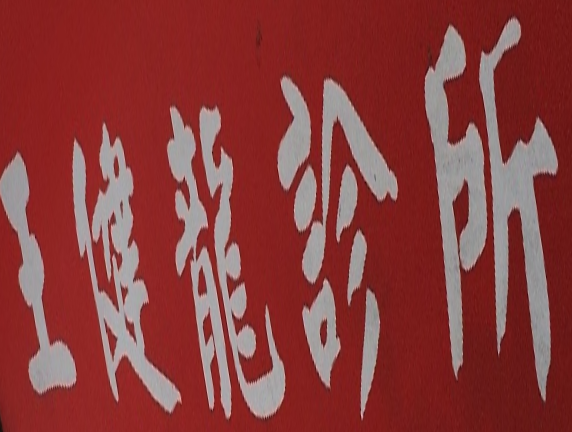 王健龍診所